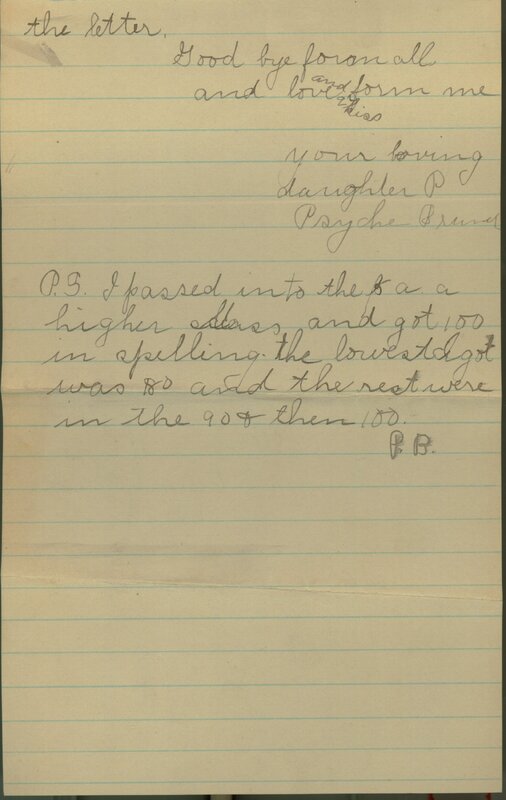 the letter.
Good bye forom all
and love and a kiss form me
your loving
daughter P
Psyche
P.S. I passed into the a a
higher class and got 100
in spelling. the lowest I got
was 80 and the rest were
in the 90 & then 100.
P. B.